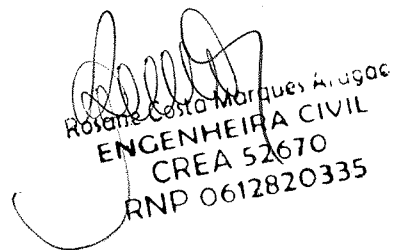 Rosane Costa Marques Aragao
ENGENHEIRA CIVIL
CREA 52670
RNP 0612820335